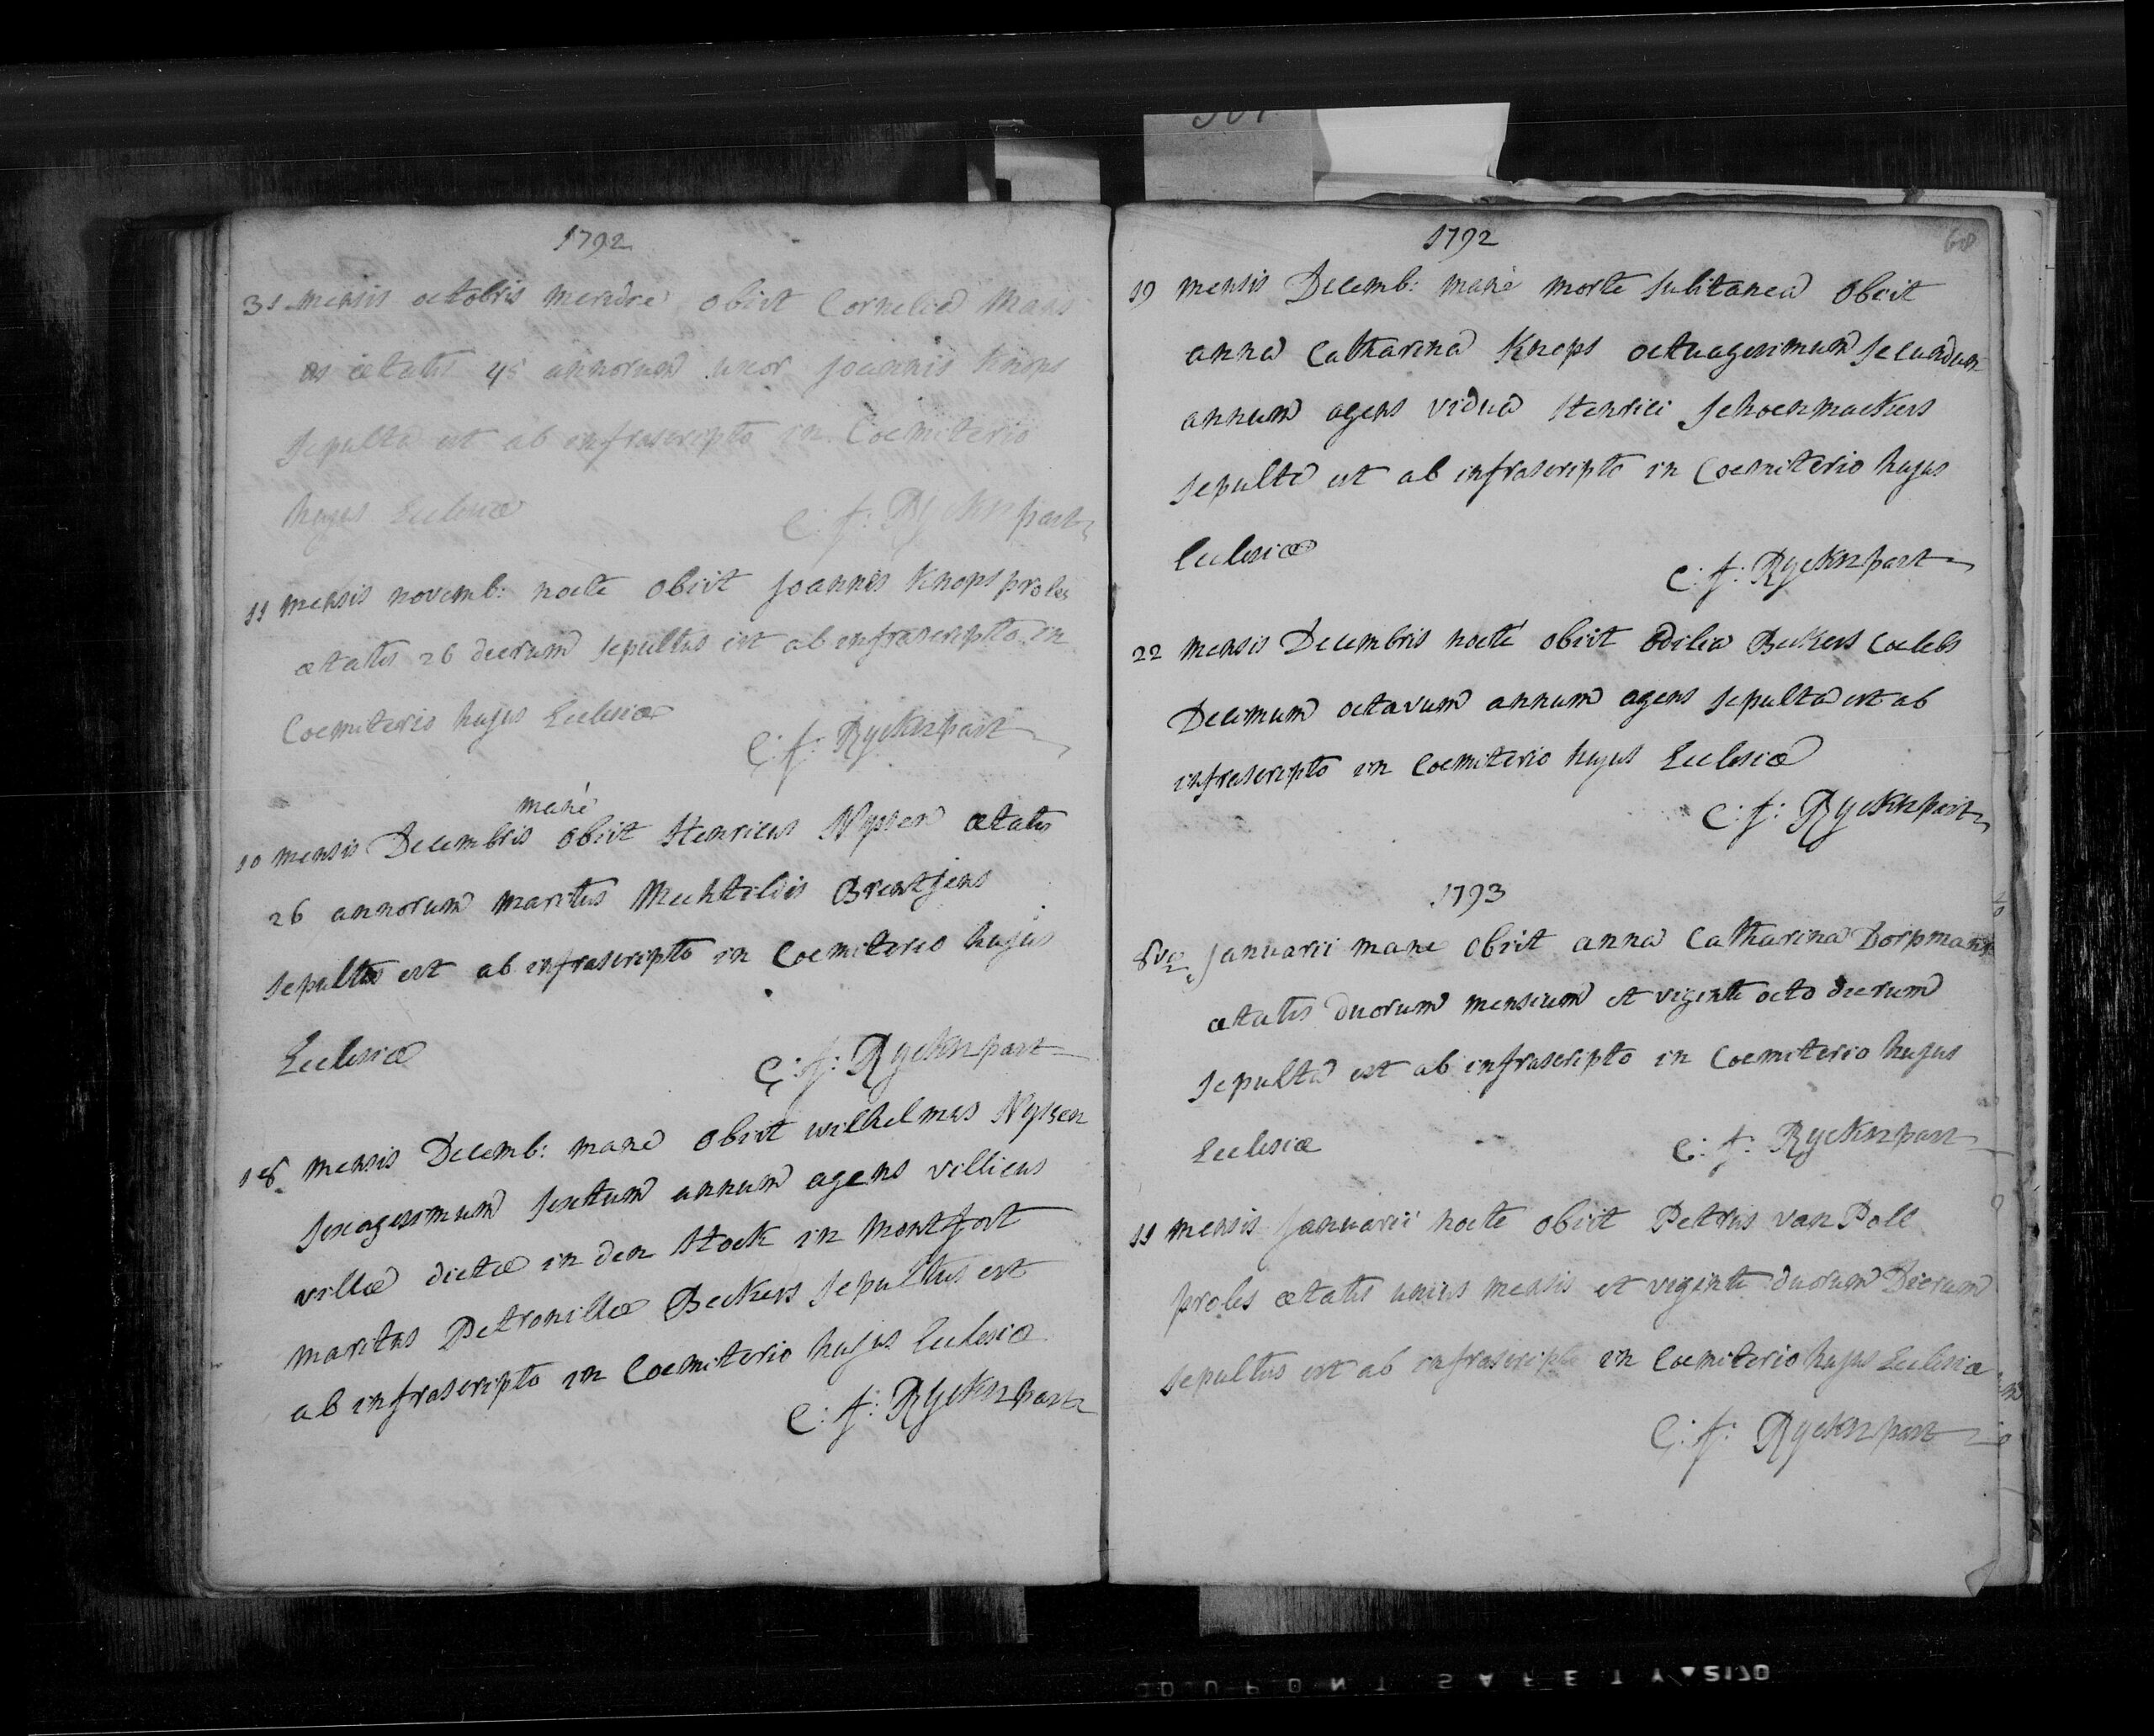 1792
31 mensis octobris meridie obiit Cornelia Maas
ætatis 45 annorum uxor Joannis Knops
sepulta est ab infrascripto in Coemiterio
hujus Eclesiæ C: f: Ryckn past
11 mensis novemb: nocte obiit Joannes Knops proles
ætatis 26 dierum sepultus est ab infrascripto in
Coemiterio hujus Eclesiæ
C: f: Ryckn past
manè
10 mensis Decembris obiit Henricus Nyssen ætatis
26 annorum maritus Mechtildis Brentjens
sepultus est ab infrascripto in Coemiterio hujus
Eclesiæ C: f: Ryckn past
18 mensis Decemb: manè obiit wilhelmus Nyssen
sexagesimum sextum annum agens villicus
villæ dictæ in den Stock in montfort
maritus Petronillæ Beckers sepultus est
ab infrascripto in Coemiterio hujus Eclesiæ
C: f: Ryckn past
1792
68
19 mensis Decemb: manè morte subitanea obiit
anna Catharina Knops octuagesimum secundum
annum agens vidua Henrici Schoenmackers
sepulta est ab infrascripto in Coemiterio hujus
Eclesiæ
C: f: Ryckn past
22 mensis Decembris nocte obiit Odilia Beckers Coelebs
Decimum octavum annum agens sepulta est ab
infrascripto in Coemiterio hujus Eclesiæ
C: f: Ryckn past
1793
8va Januarii mane obiit anna Catharina Dorpmans
ætatis duorum mensium et viginti octo dierum
sepulta est ab infrascripto in Coemiterio hujus
Eclesiæ C: f: Ryckn past
11 mensis Januarii nocte obiit Petrus van Poll
proles ætatis unius mensis et viginti duorum Dierum
sepultus est ab infrascripto in Coemiterio hujus Eclesiæ
C: f: Ryckn past
DUPONT SAFETY 2170